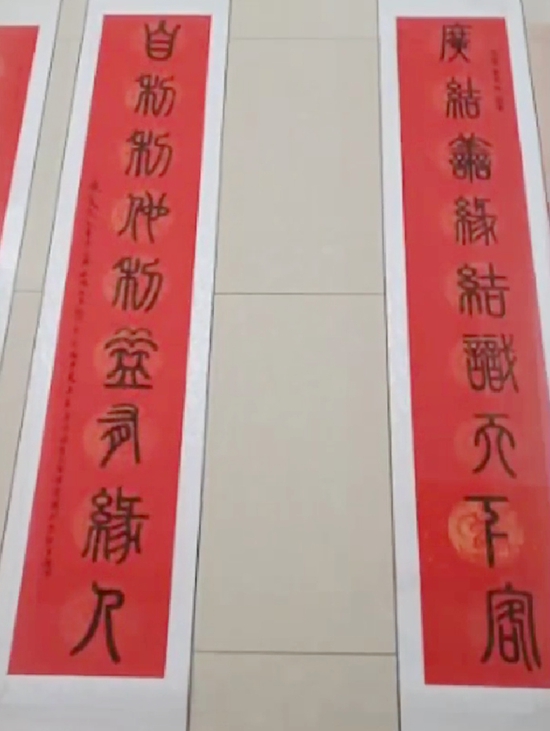 廣結善緣結識天下客
自利利他利益有緣人